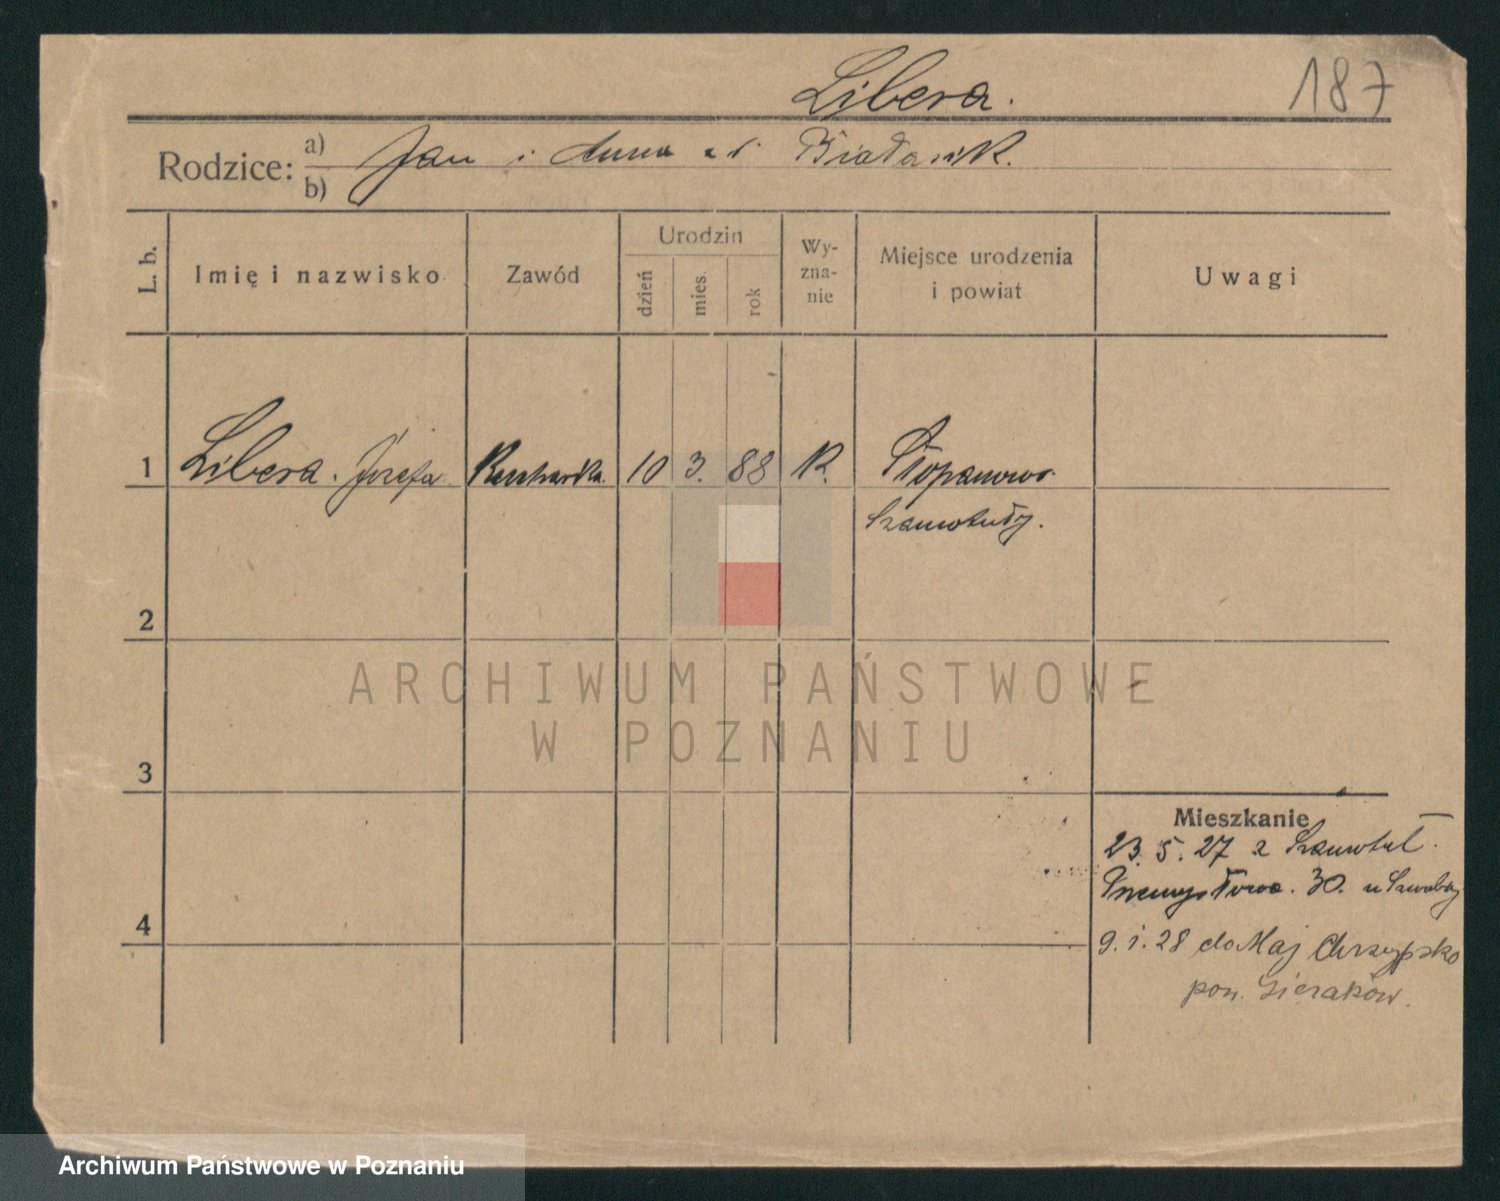 Libera.
187
Rodzice:
a) Jan i Anna z d. Białasik.
b)
L. b.
Imię i nazwisko
Zawód
Urodzin
dzień
mies.
rok
Wy-
zna-
nie
Miejsce urodzenia
i powiat
Uwagi
1
Libera. Józefa
Kucharka.
10
3.
88
K.
Stopanowo
Szamotuły.
2
ARCHIWUM PAŃSTWOWE
W POZNANIU
3
Mieszkanie
23. 5. 27 z Szamotuł.
Przemysłowa. 30. u
4
9. 1. 28 do Maj Chrzypsko
pow. Sieraków.
Archiwum Państwowe w Poznaniu